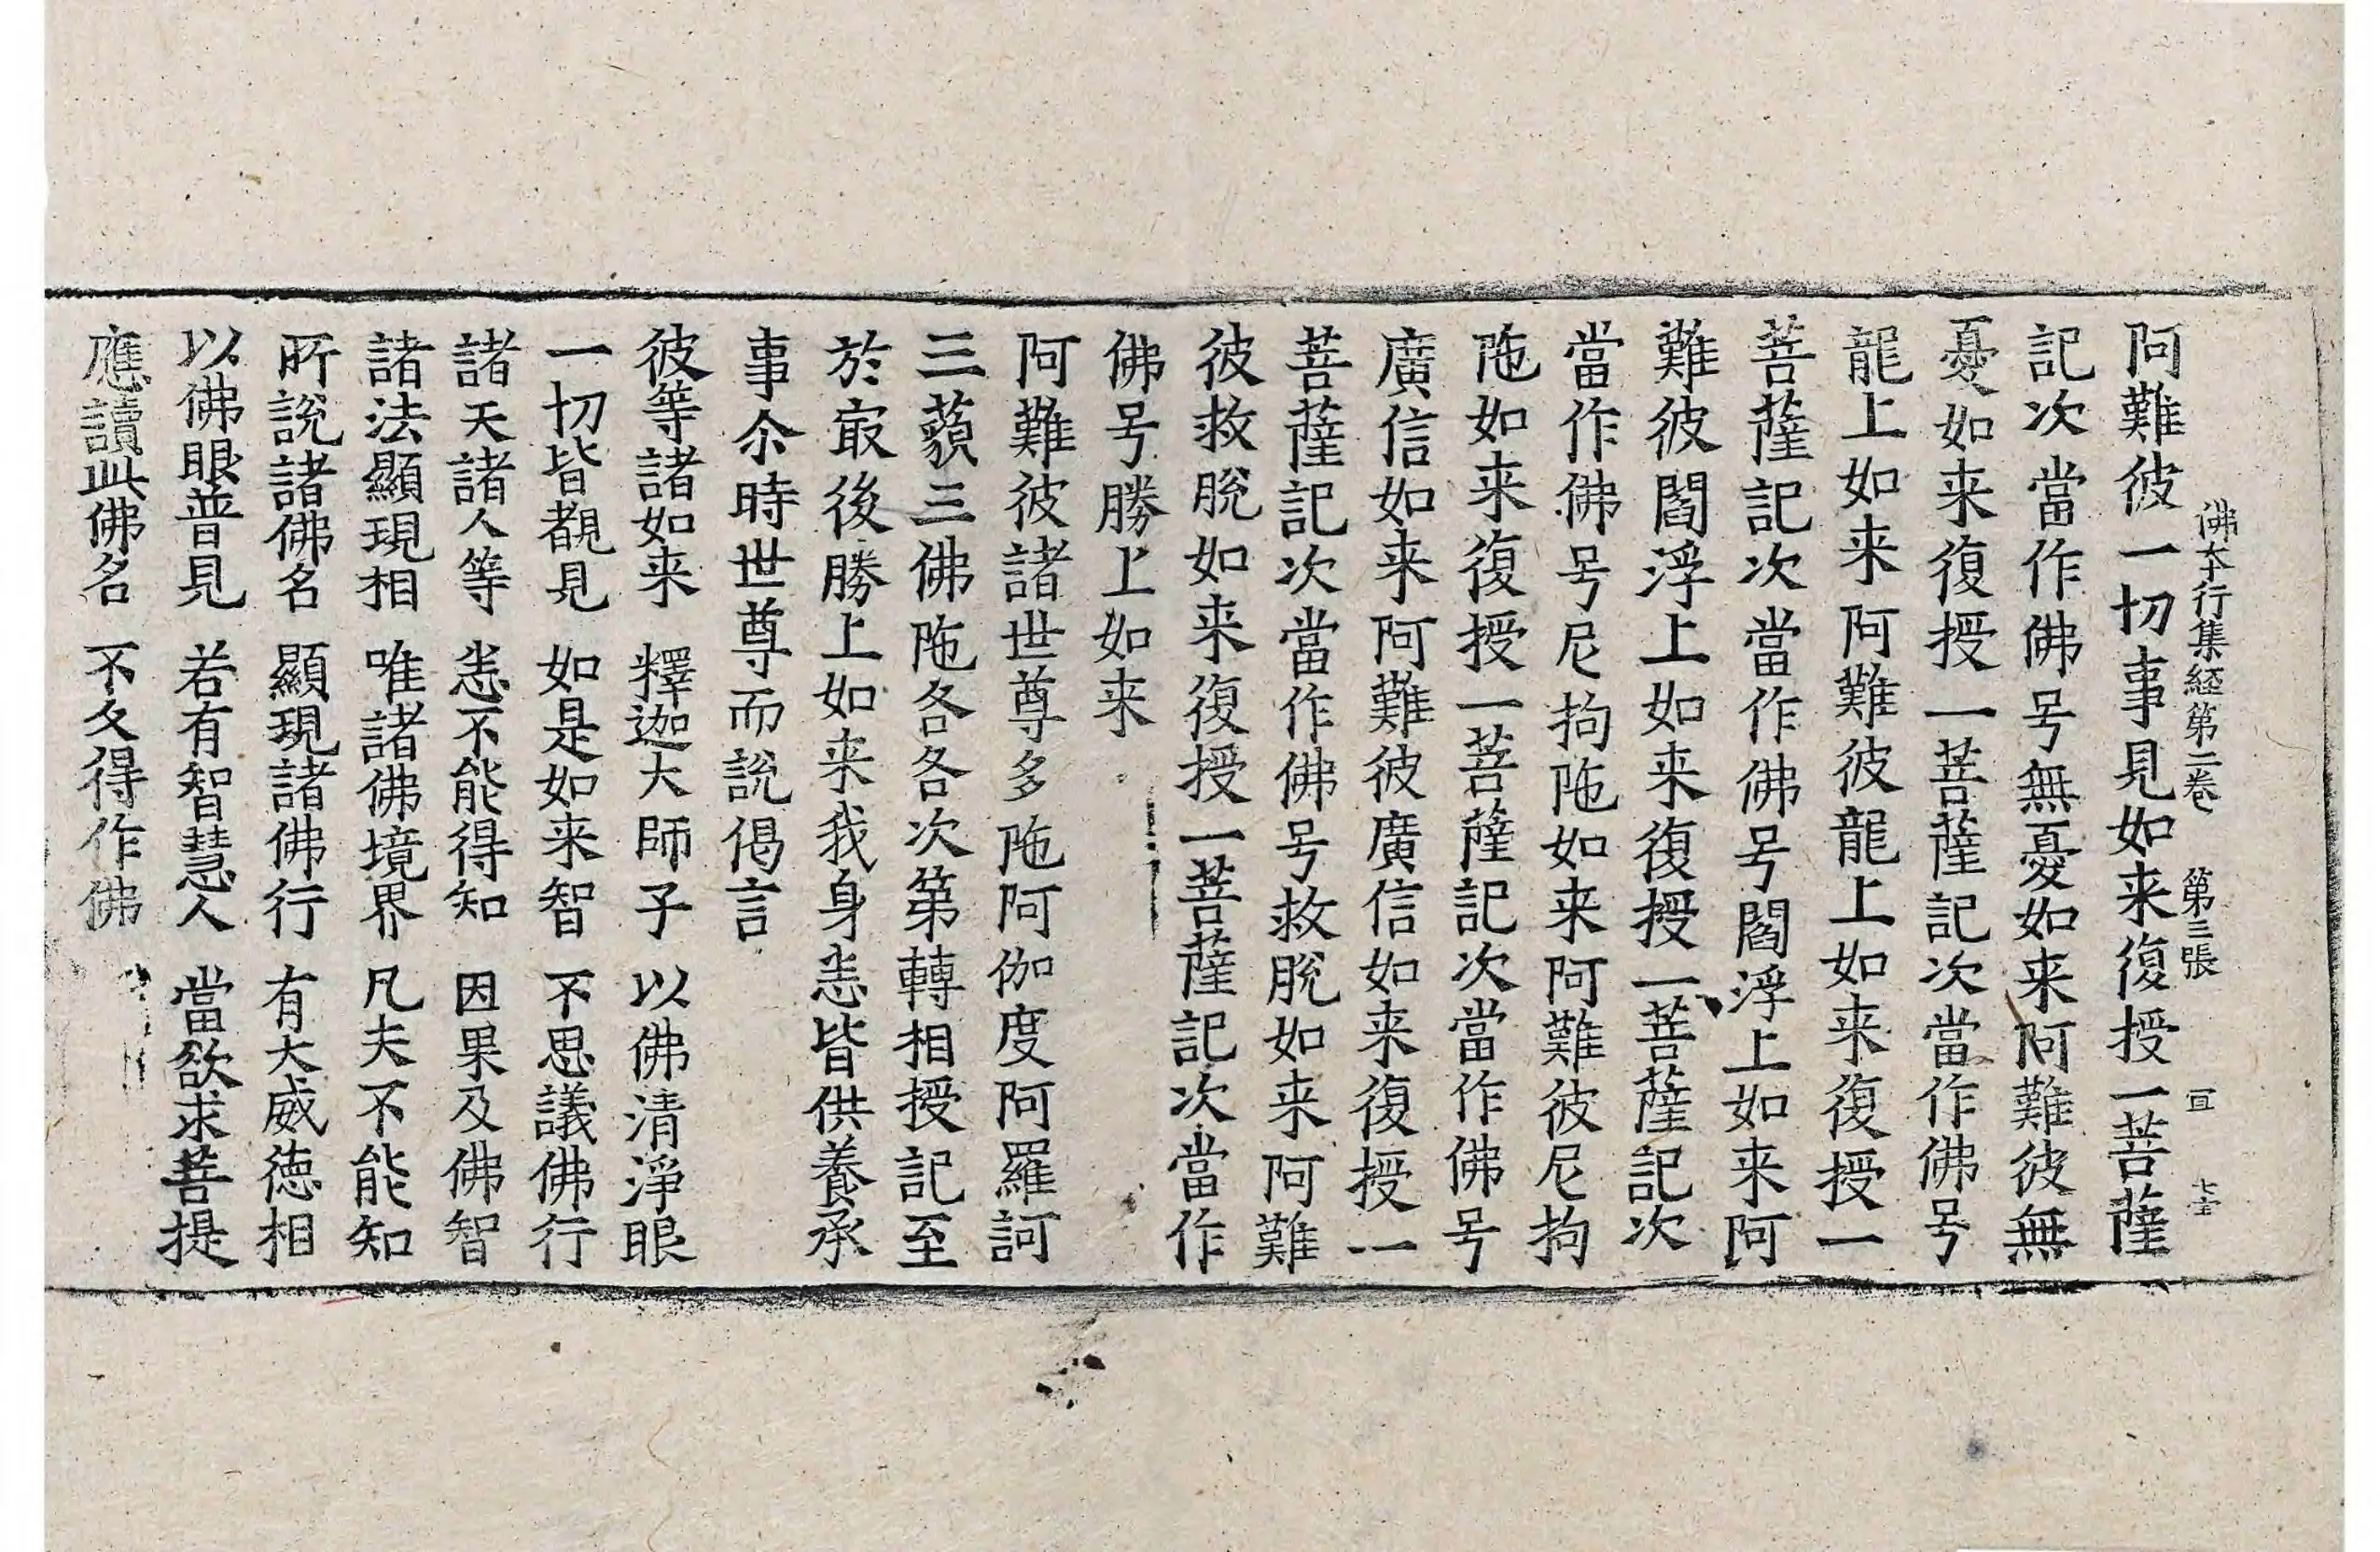 阿難彼一切事見如来復授一菩薩
佛夲行集経第二卷 第三張 冝
記次當作佛号無憂如来阿難彼無
憂如来復授一菩薩記次當作佛号
龍上如来阿難彼龍上如来復授一
菩薩記次當作佛号閻浮上如来阿
難彼閻浮上如来復授一菩薩記次
當作佛号尼拘陁如来阿難彼尼拘
陁如来復授一菩薩記次當作佛号
廣信如来阿難彼廣信如来復授一
菩薩記次當作佛号救脫如来阿難
彼救脫如来復授一菩薩記次當作
佛号勝上如来
阿難彼諸世尊多陁阿伽度阿羅訶
三藐三佛陁各各次第轉相授記至
於㝡後勝上如来我身悉皆供養承
事尒時世尊而說偈言
彼等諸如来 釋迦大師子 以佛清淨眼
一切皆覩見 如是如来智 不思議佛行
諸天諸人等 悉不能得知 因果及佛智
諸法顯現相 唯諸佛境界 凡夫不能知
所說諸佛名 顯現諸佛行 有大威徳相
以佛眼普見 若有智慧人 當欲求菩提
應讀此佛名 不久得作佛